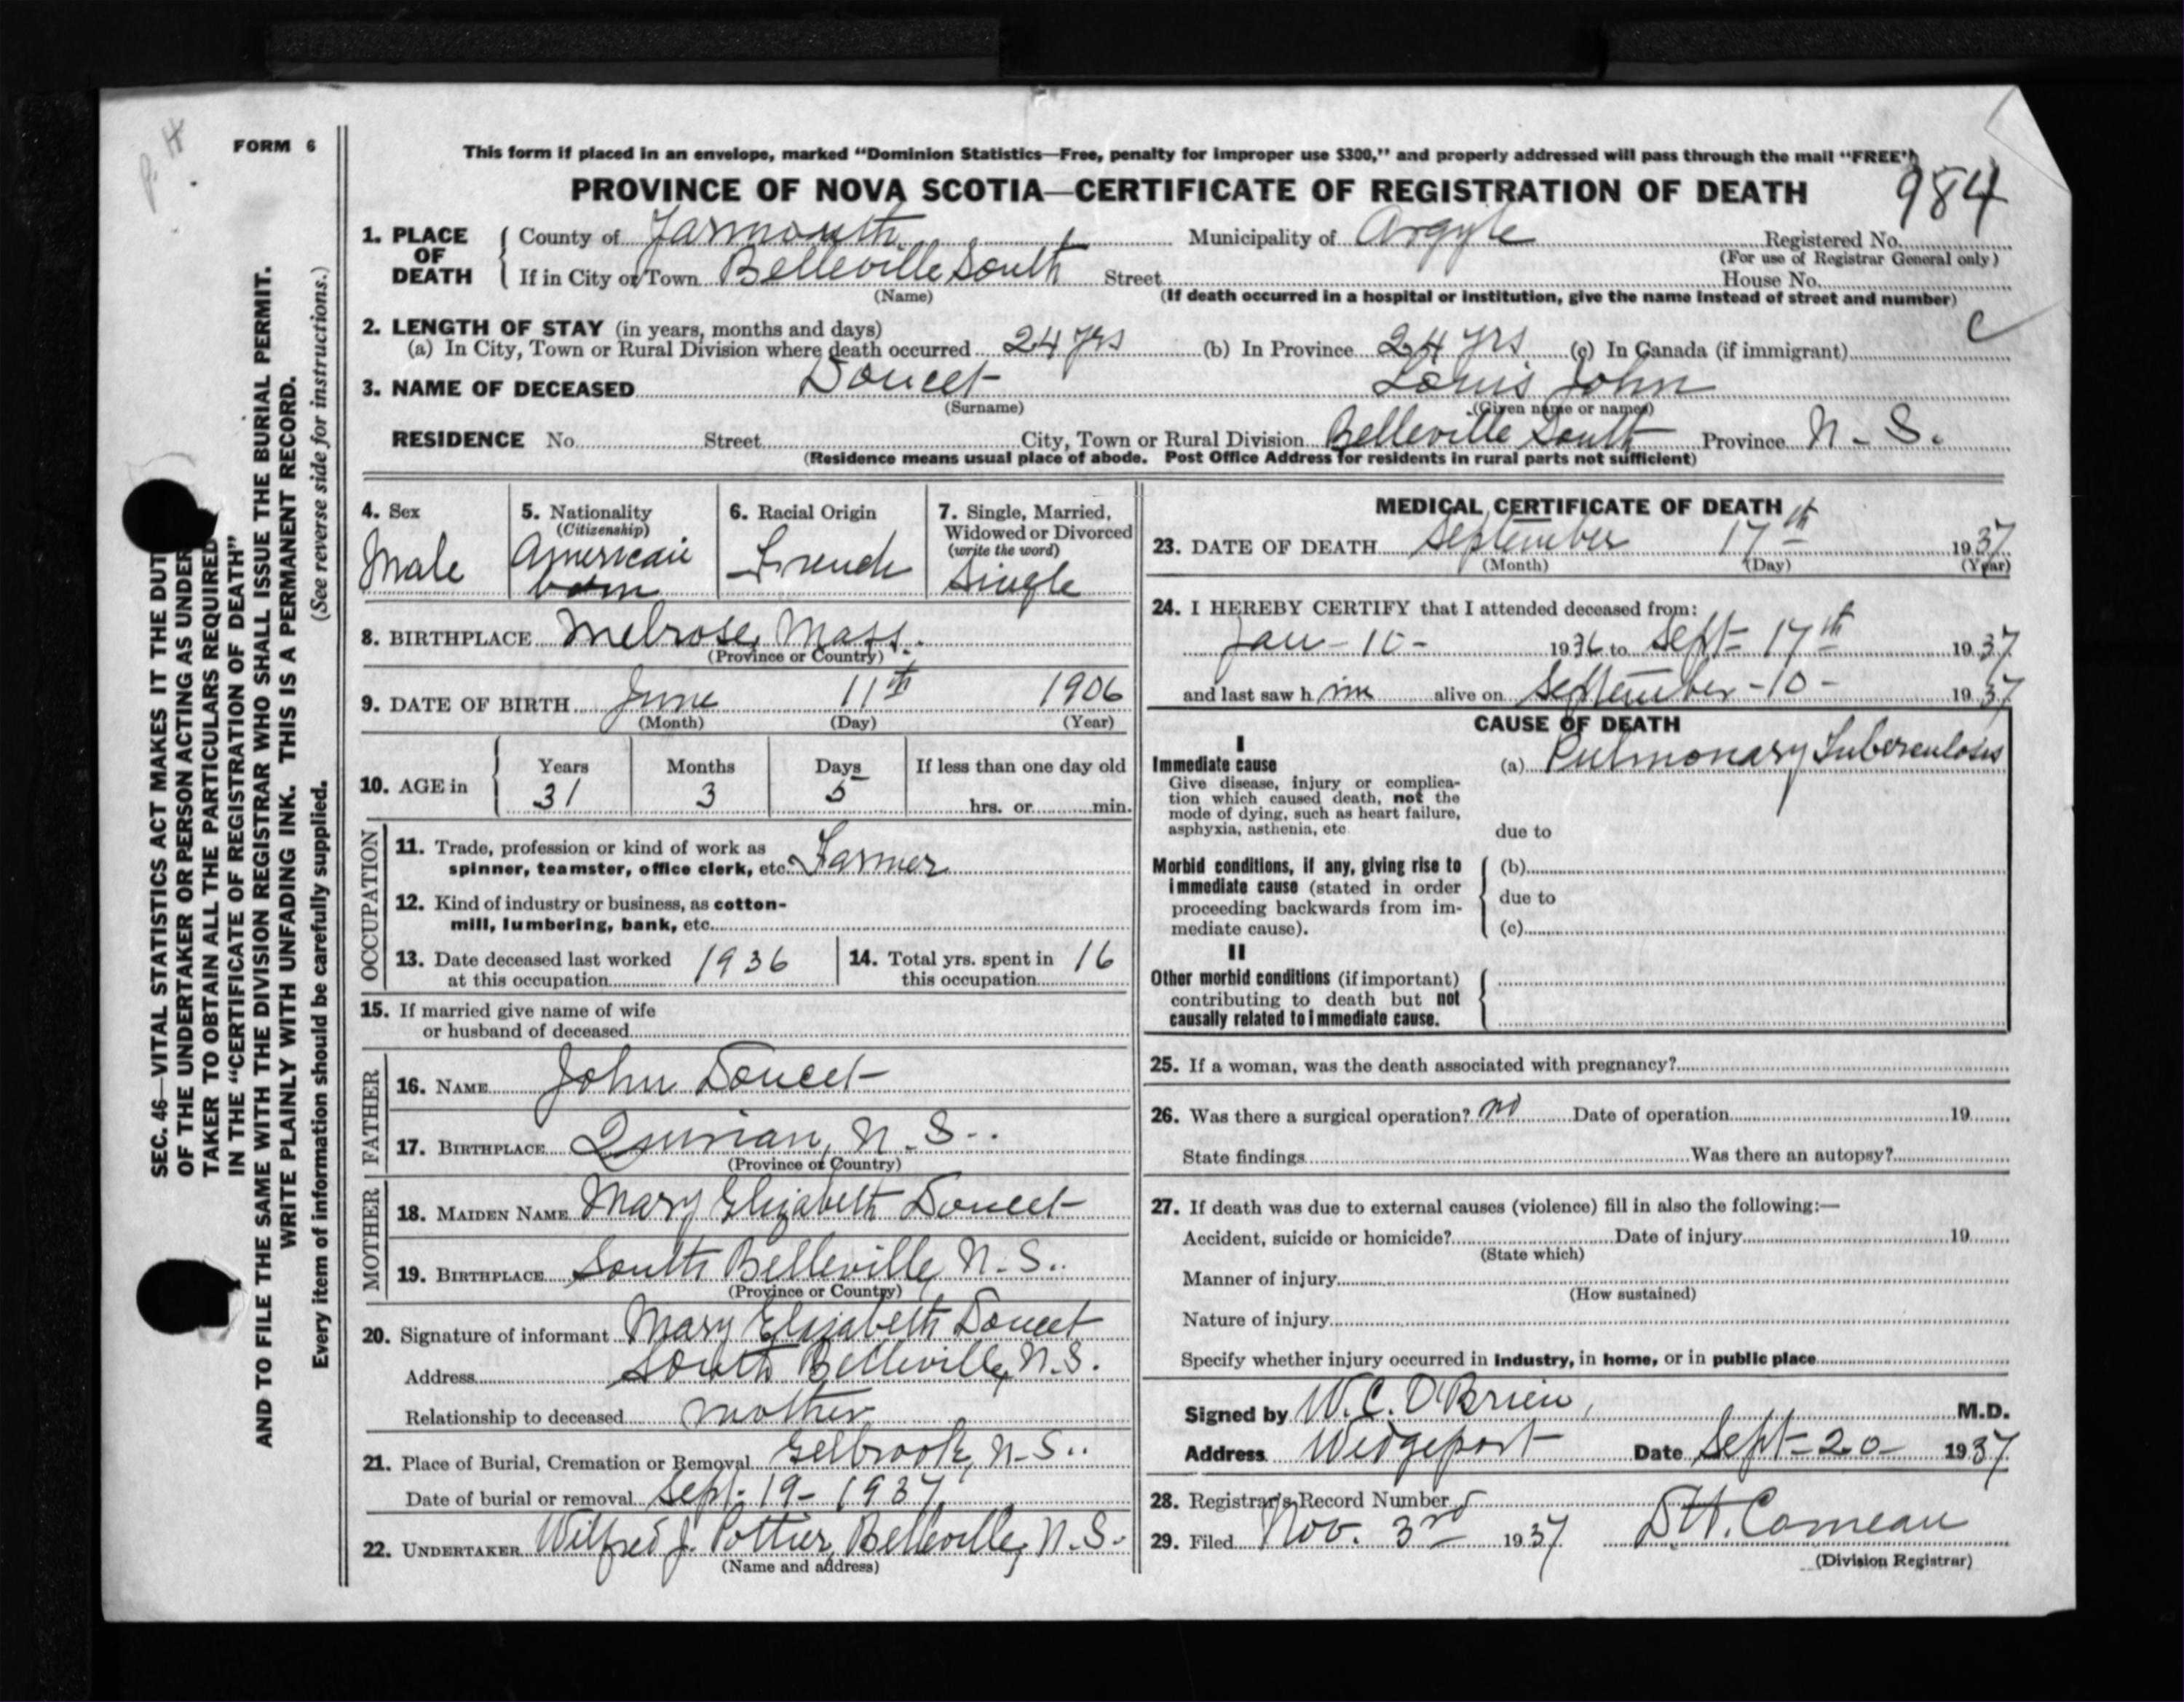 P. H
FORM 6
This form if placed in an envelope, marked “Dominion Statistics—Free, penalty for improper use $300,” and properly addressed will pass through the mail “FREE”
PROVINCE OF NOVA SCOTIA—CERTIFICATE OF REGISTRATION OF DEATH
984
1. PLACE OF DEATH
County of Yarmouth Municipality of Argyle Registered No.
(For use of Registrar General only)
If in City or Town Belleville South Street House No.
(Name) (If death occurred in a hospital or institution, give the name instead of street and number)
C
2. LENGTH OF STAY (in years, months and days)
(a) In City, Town or Rural Division where death occurred 24 yrs (b) In Province 24 yrs (c) In Canada (if immigrant)
3. NAME OF DECEASED Doucet Louis John
(Surname) (Given name or names)
RESIDENCE No. Street City, Town or Rural Division Belleville South Province N-S.
(Residence means usual place of abode. Post Office Address for residents in rural parts not sufficient)
4. Sex
Male
5. Nationality
(Citizenship)
American
born
6. Racial Origin
French
7. Single, Married,
Widowed or Divorced
(write the word)
Single
8. BIRTHPLACE Melrose, Mass.
(Province or Country)
9. DATE OF BIRTH June 11th 1906
(Month) (Day) (Year)
10. AGE in
Years Months Days If less than one day old
31 3 5 hrs. or min.
OCCUPATION
11. Trade, profession or kind of work as
spinner, teamster, office clerk, etc. Farmer
12. Kind of industry or business, as cotton-
mill, lumbering, bank, etc.
13. Date deceased last worked
at this occupation 1936
14. Total yrs. spent in
this occupation 16
15. If married give name of wife
or husband of deceased
FATHER
16. NAME John Doucet
17. BIRTHPLACE Quinan, N.S.
(Province or Country)
MOTHER
18. MAIDEN NAME Mary Elizabeth Doucet
19. BIRTHPLACE South Belleville, N-S.
(Province or Country)
20. Signature of informant Mary Elizabeth Doucet
Address South Belleville, N.S.
Relationship to deceased mother
21. Place of Burial, Cremation or Removal Eelbrook, N-S.
Date of burial or removal Sept. 19- 1937
22. UNDERTAKER Wilfred J. Pottier, Belleville, N.S.
(Name and address)
MEDICAL CERTIFICATE OF DEATH
23. DATE OF DEATH September 17th 1937
(Month) (Day) (Year)
24. I HEREBY CERTIFY that I attended deceased from:
Jan - 10 - 1936 to Sept- 17th 1937
and last saw him alive on September -10- 1937
CAUSE OF DEATH
I
Immediate cause
Give disease, injury or complica-
tion which caused death, not the
mode of dying, such as heart failure,
asphyxia, asthenia, etc.
(a) Pulmonary Tuberculosis
due to
Morbid conditions, if any, giving rise to
immediate cause (stated in order
proceeding backwards from im-
mediate cause).
(b)
due to
(c)
II
Other morbid conditions (if important)
contributing to death but not
causally related to immediate cause.
25. If a woman, was the death associated with pregnancy?
26. Was there a surgical operation? no Date of operation 19
State findings Was there an autopsy?
27. If death was due to external causes (violence) fill in also the following:—
Accident, suicide or homicide? Date of injury 19
(State which)
Manner of injury
(How sustained)
Nature of injury
Specify whether injury occurred in industry, in home, or in public place
Signed by W.C. O'Brien, M.D.
Address Wedgeport Date Sept-20- 1937
28. Registrar's Record Number 5
29. Filed Nov. 3rd 1937 D.H. Comeau
(Division Registrar)
SEC. 46—VITAL STATISTICS ACT MAKES IT THE DUT
OF THE UNDERTAKER OR PERSON ACTING AS UNDER
TAKER TO OBTAIN ALL THE PARTICULARS REQUIRED
IN THE “CERTIFICATE OF REGISTRATION OF DEATH”
AND TO FILE THE SAME WITH THE DIVISION REGISTRAR WHO SHALL ISSUE THE BURIAL PERMIT.
WRITE PLAINLY WITH UNFADING INK. THIS IS A PERMANENT RECORD.
Every item of information should be carefully supplied. (See reverse side for instructions.)